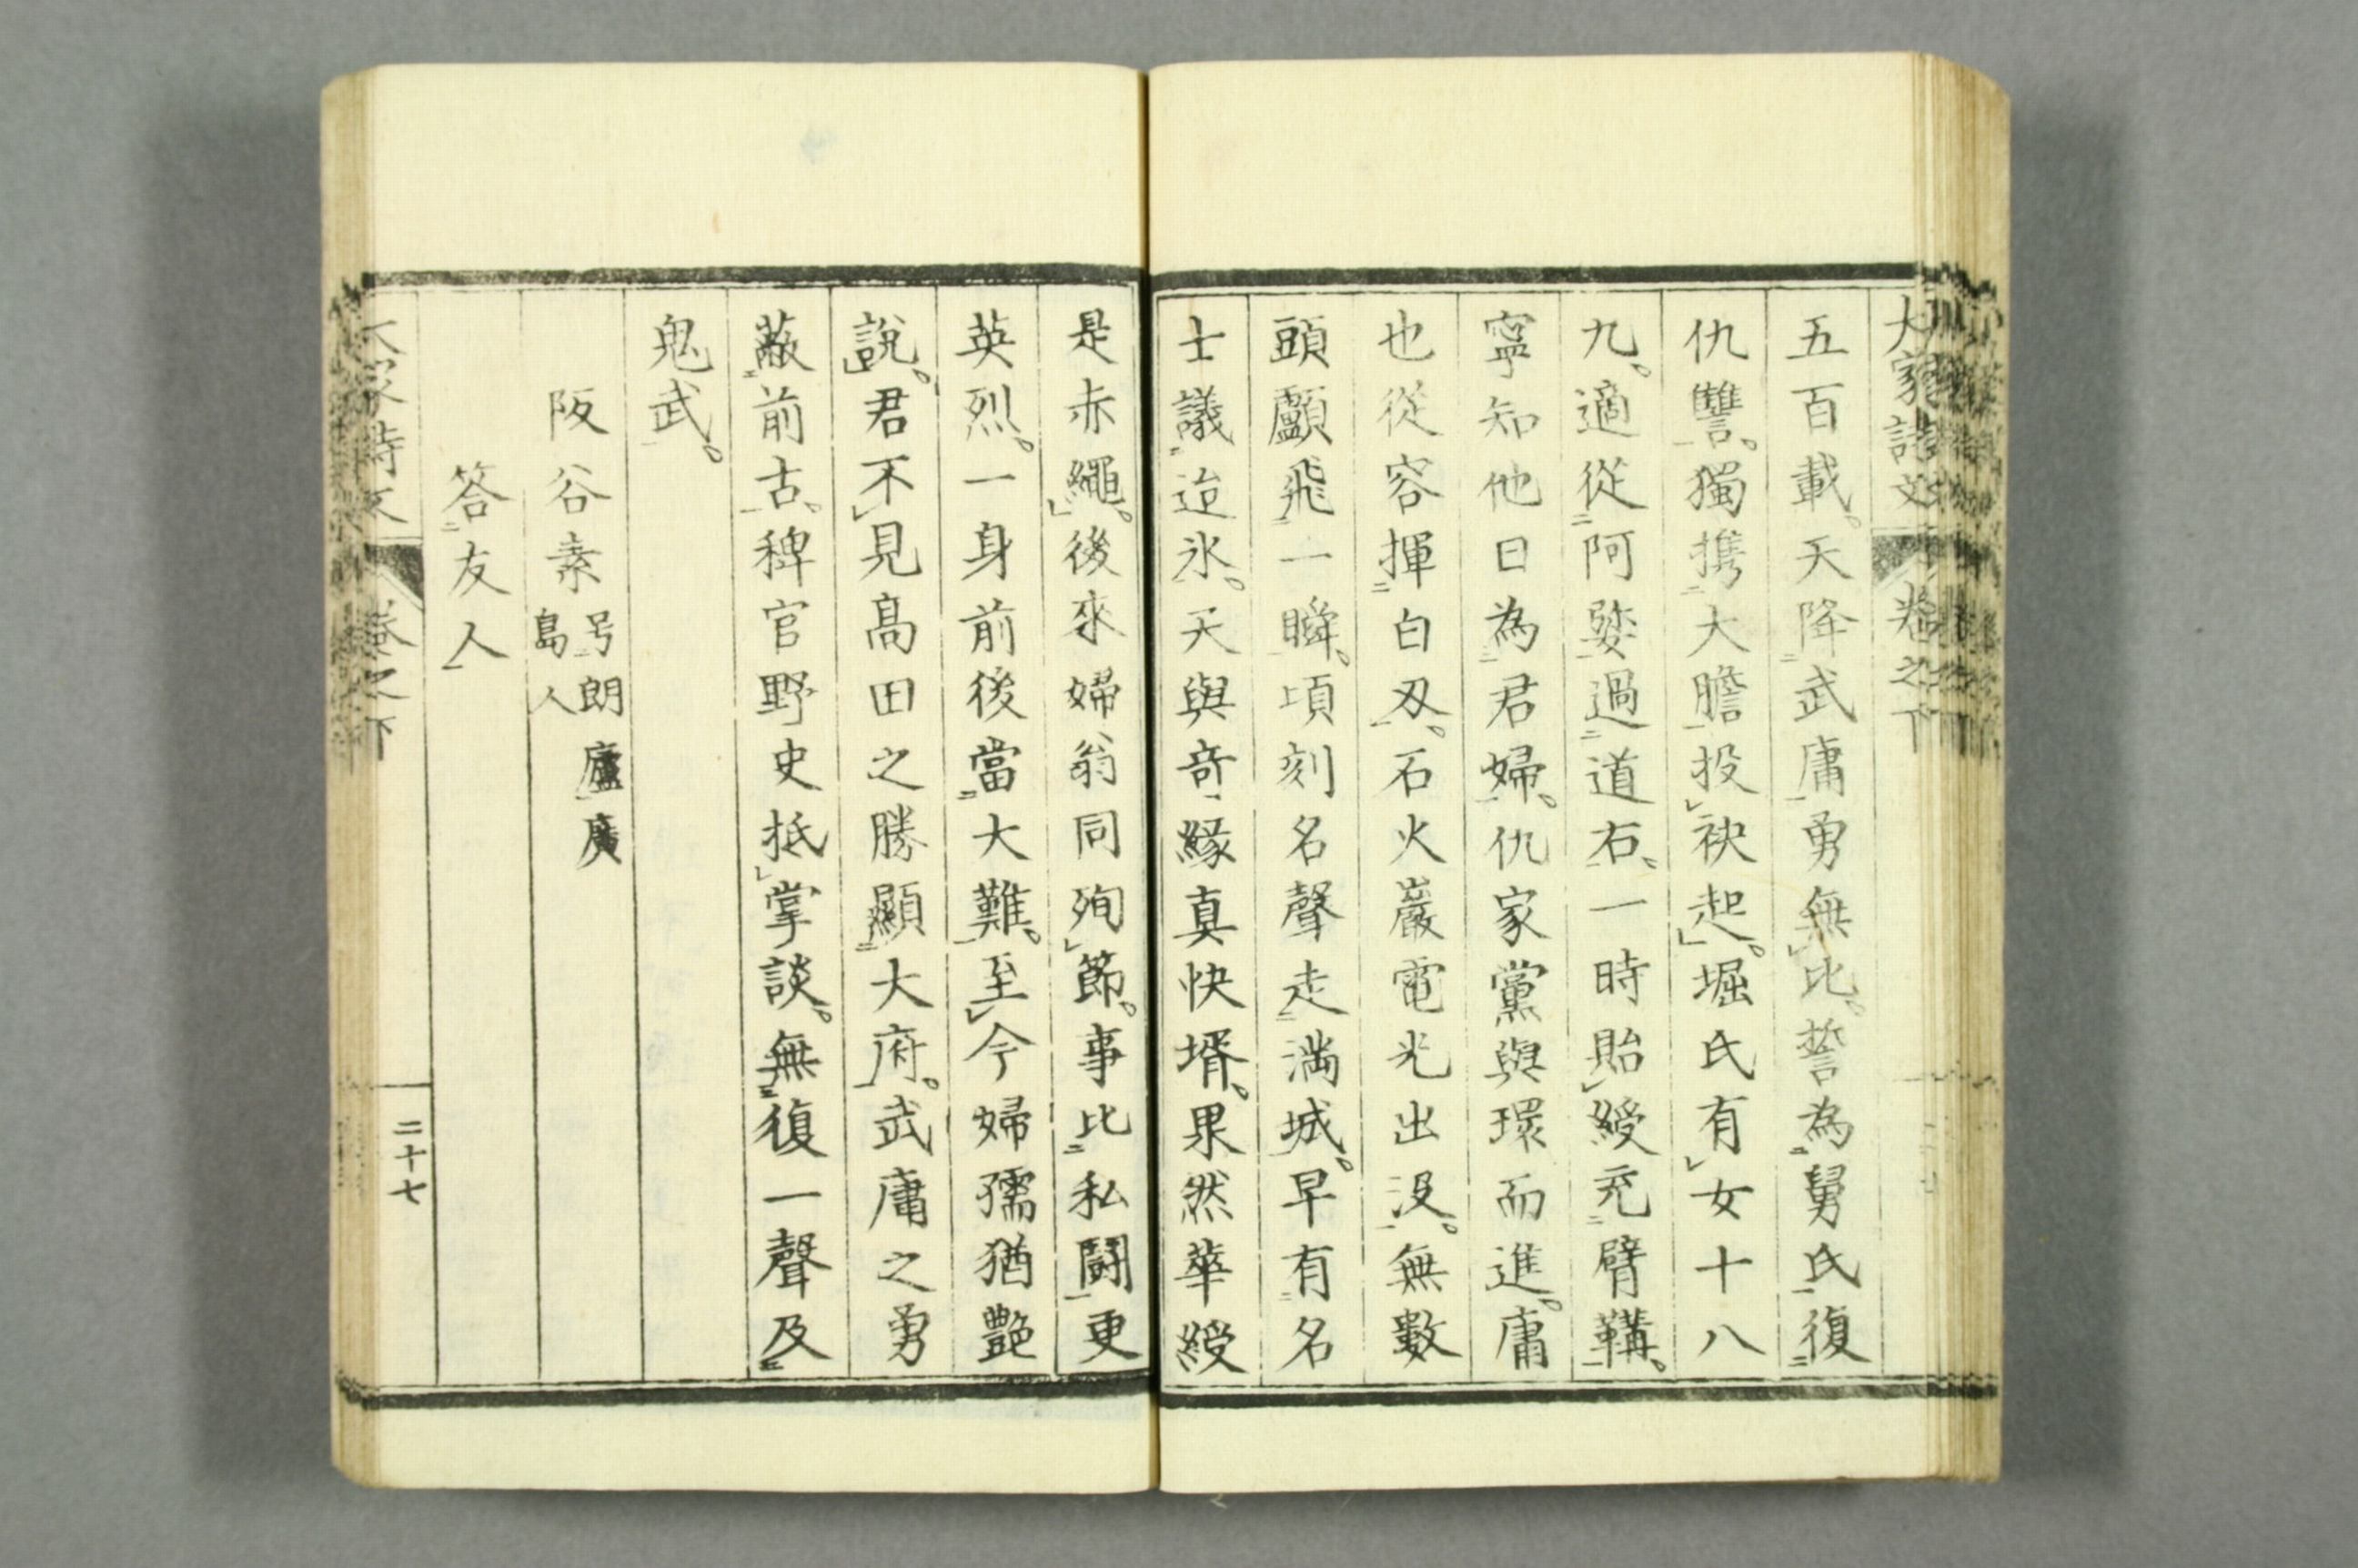 大家詩文 卷之下
五百載。天降武庸勇無比。誓為舅氏復
仇讐。獨携大膽投袂起。堀氏有女十八
九。適從阿嫛過道右、一時貽綬充臂鞲、
寧知他日為君婦。仇家黨與環而進。庸
也從容揮白刃、石火巖電光出没。無數
頭顱飛一瞬。頃刻名聲走満城。早有名
士議迨氷。天與奇緣真快壻。果然華綬
是赤繩。後來婦翁同殉節。事比私鬪更
英烈。一身前後當大難。至今婦孺猶艷
說。君不見高田之勝顯大府。武庸之勇
蔽前古。稗官野史抵掌談。無復一聲及
鬼武。
阪谷素 号朗廬廣
島人
答友人
大家詩文 卷之下 二十七